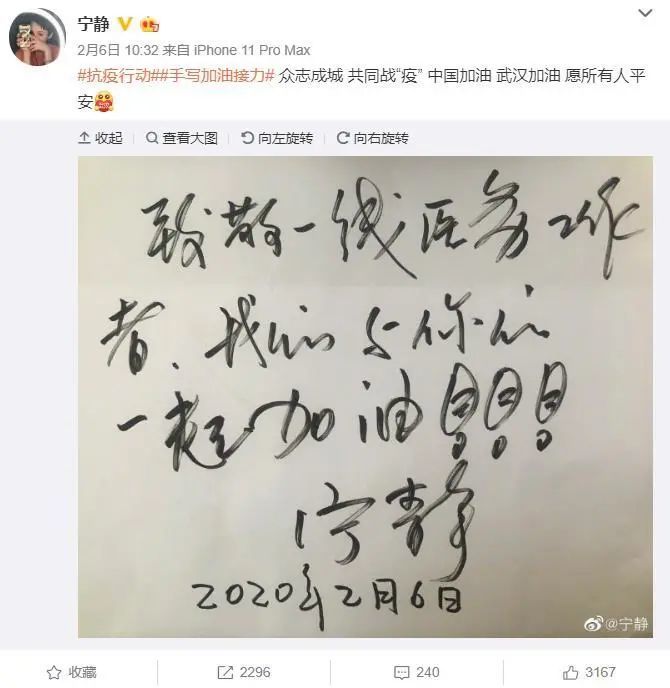 宁静
2月6日 10:32 来自 iPhone 11 Pro Max
#抗疫行动##手写加油接力# 众志成城 共同战“疫” 中国加油 武汉加油 愿所有人平
安
收起 查看大图 向左旋转 向右旋转
致敬一线医务工作
者、我们与你们
一起加油!!!
宁静
2020年2月6日
@宁静
收藏 2296 240 3167